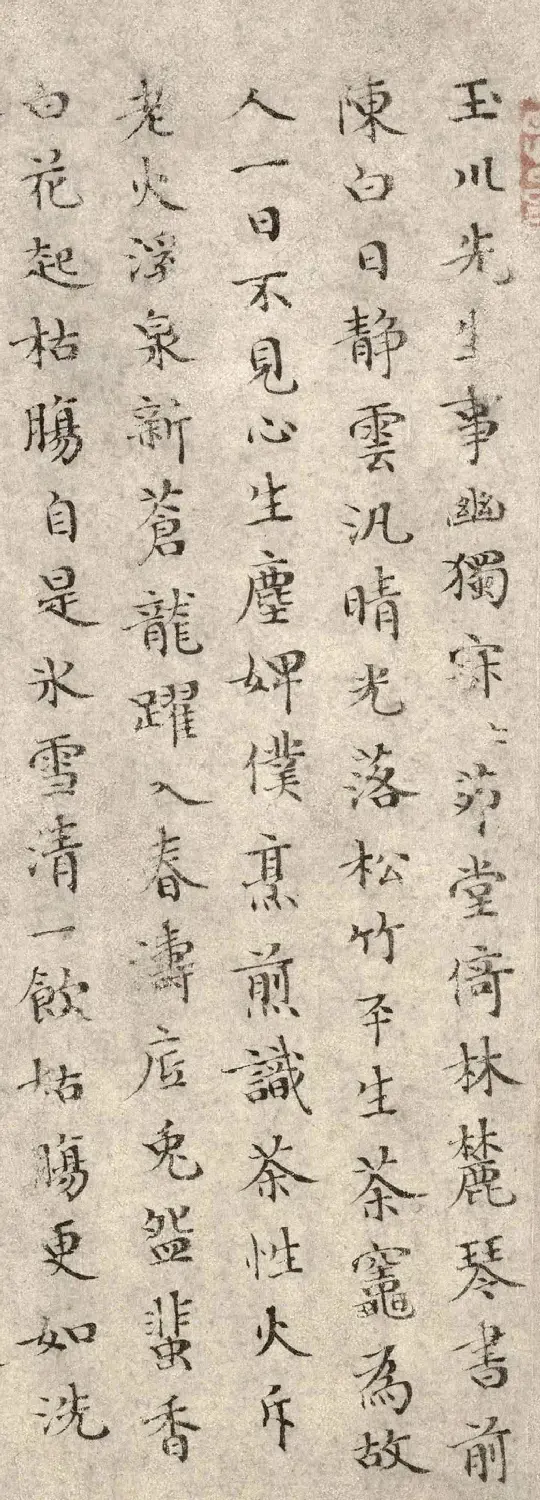 玉川先生事幽獨寂〻茆堂倚林麓琴書前
陳白日静雲汎晴光落松竹平生茶竈為故
人一日不見心生塵婢僕烹煎識茶性火斥
老火浮泉新蒼龍躍入春濤底兎盌蜚香
白花起枯腸自是氷雪清一飲枯腸更如洗